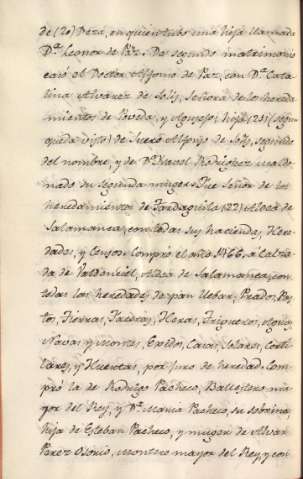 de (20) Deza, en quien tubo una hija llamada
D.ª Leonor de Paz. De segundo matrimonio
casó el Doctor Alfonso de Paz, con D.ª Cata
lina Alvarez de Solis, Señora de los hereda
mientos de Poveda, y hija (21) (segun
queda dijto) de Suero Alfonso de Solis, segundo
del nombre, y de D.ª Isavel Rodriguez maldo
nado su segunda muger. Fue Señor de los
heredamientos de Tardaguila (22) Aldea de
Salamanca, con todas sus haciendas, Here
dades, y Censos. Compró el año 1466. a Calza
da de Valdunciel, Aldea de Salamanca, con
todas las heredades de pan llebar, Prados, Pas
tos, Tierras, Heras, Trigueros, Aguas,
Navas y montes, Exidos, Casas, Solares, Corti
nares, y Huertas, por juro de heredad. Com
pró la de Rodrigo Pacheco, Ballestero ma
yor del Rey, y D.ª Maria Pacheco, su sobrina,
hija de Esteban Pacheco, y muger de Alvar
Perez Osorio, montero mayor del Rey, y con